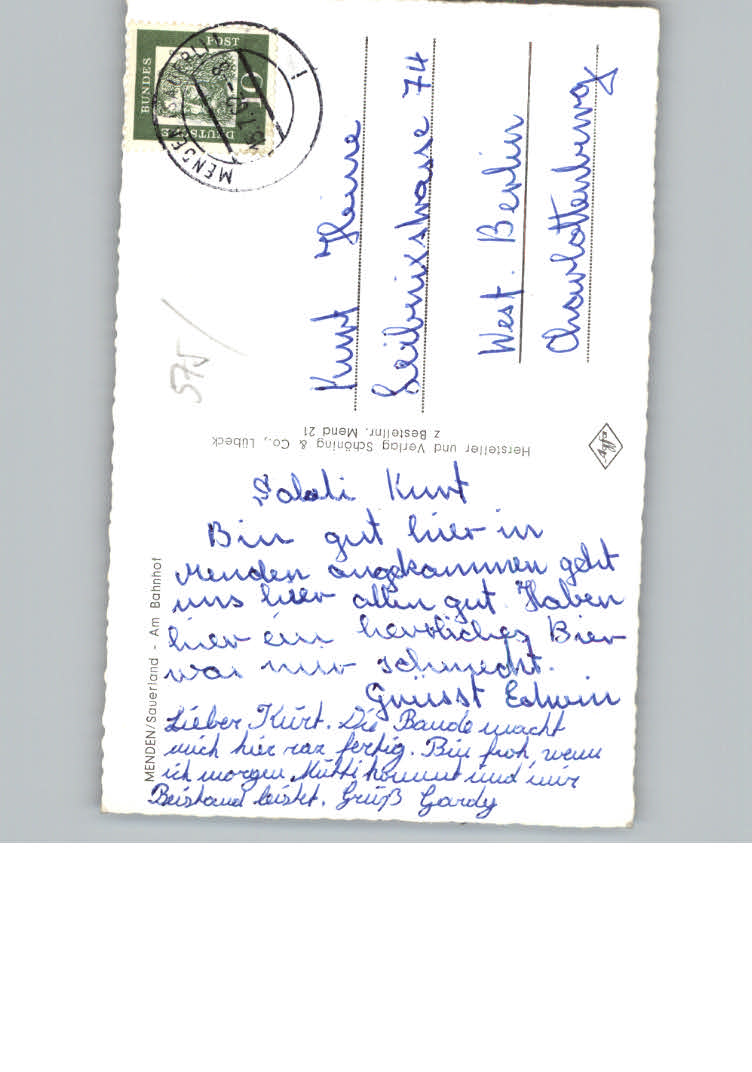 Salali Kurt
Bin gut hier in
Menden angekammen geht
uns hier allen gut. Haben
hier ein herrliches Bier
was mir schmeckt.
Grüsst Edwin
Lieber Kurt. Die Bande macht
mich hier fertig. Bin froh, wenn
ich morgen Mutti kommt und mir
Beistand leistet. Gruß Gardy
Kurt Heine
Leibnixstrasse 74
West. Berlin
Charlottenburg
MENDEN/Sauerland - Am Bahnhof
Hersteller und Verlag Schöning & Co., Lübeck
z Bestellnr. Mend 21
Agfa
575
DEUTSCHE
BUNDES
POST
10
MENDEN